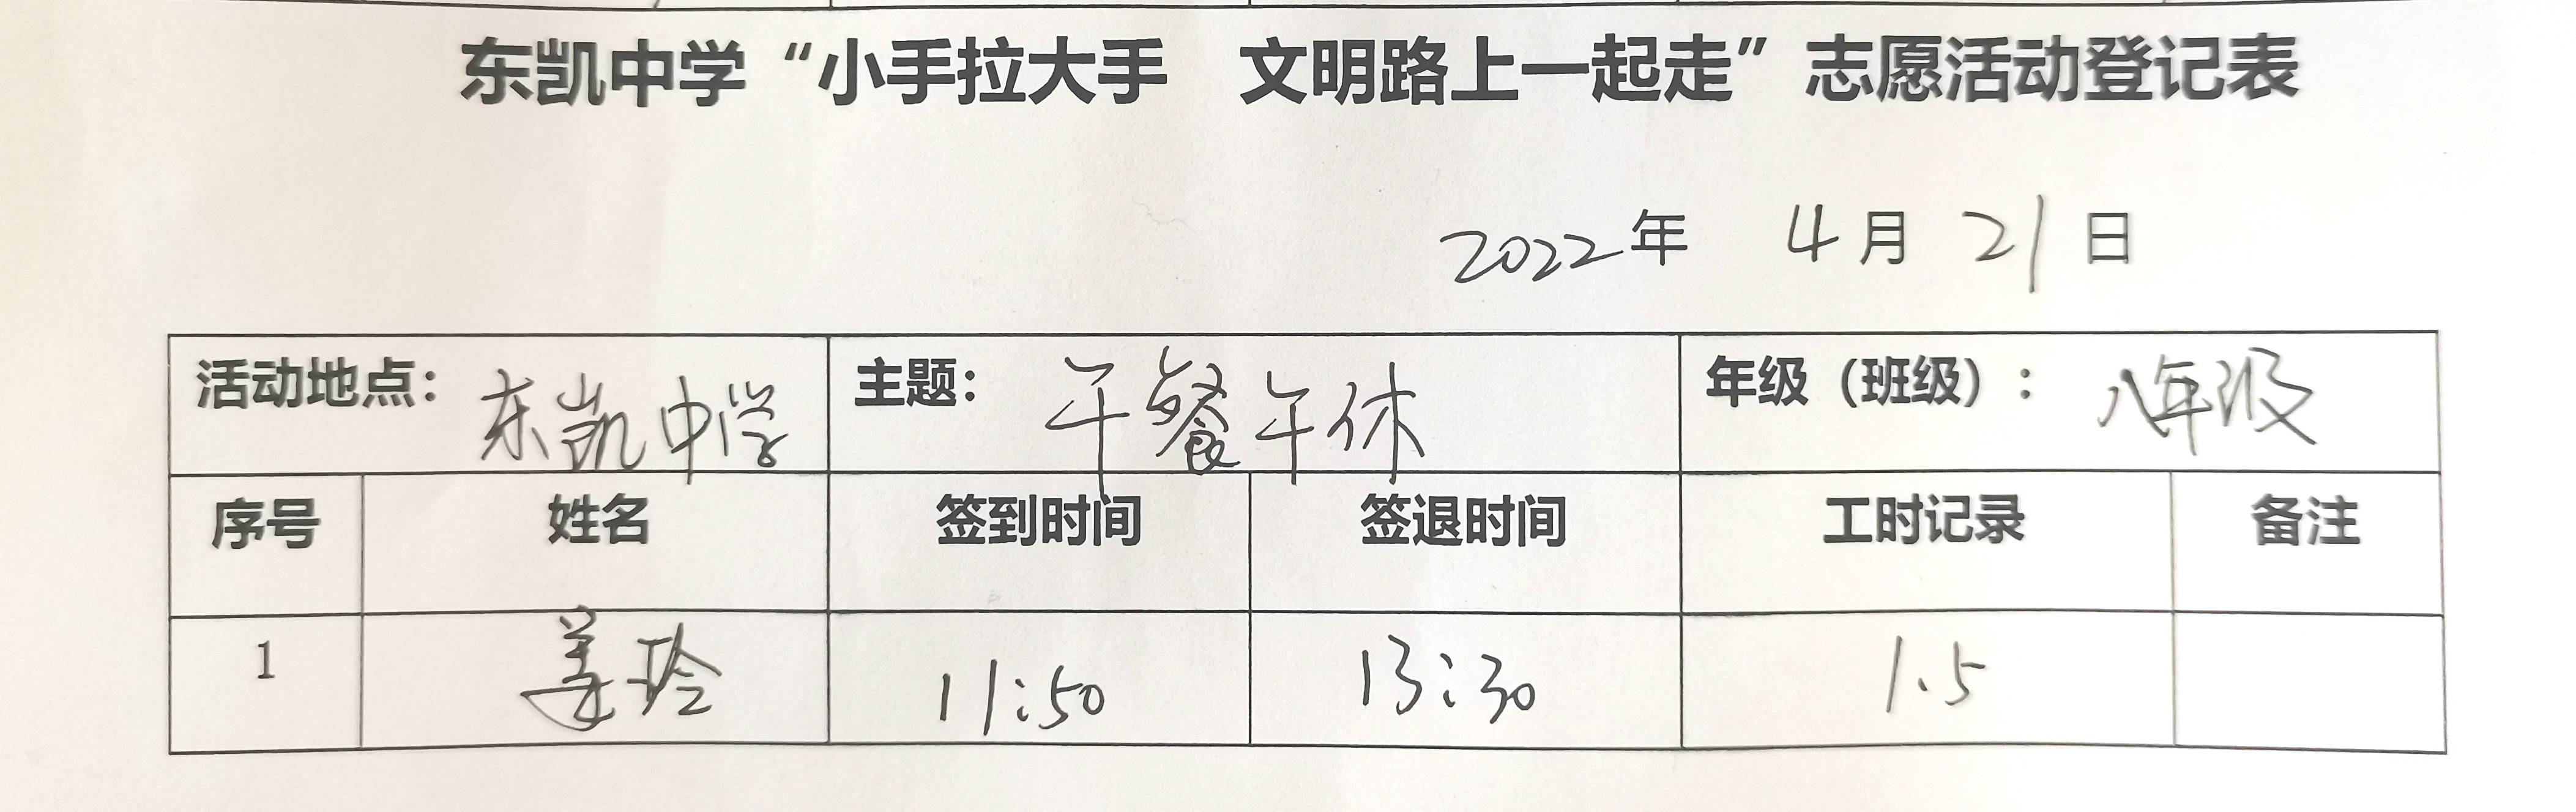 东凯中学“小手拉大手 文明路上一起走”志愿活动登记表
2022年 4月 21日
活动地点：东凯中学 主题：午餐午休 年级（班级）：八年级
序号 姓名 签到时间 签退时间 工时记录 备注
1 姜玲 11:50 13:30 1.5